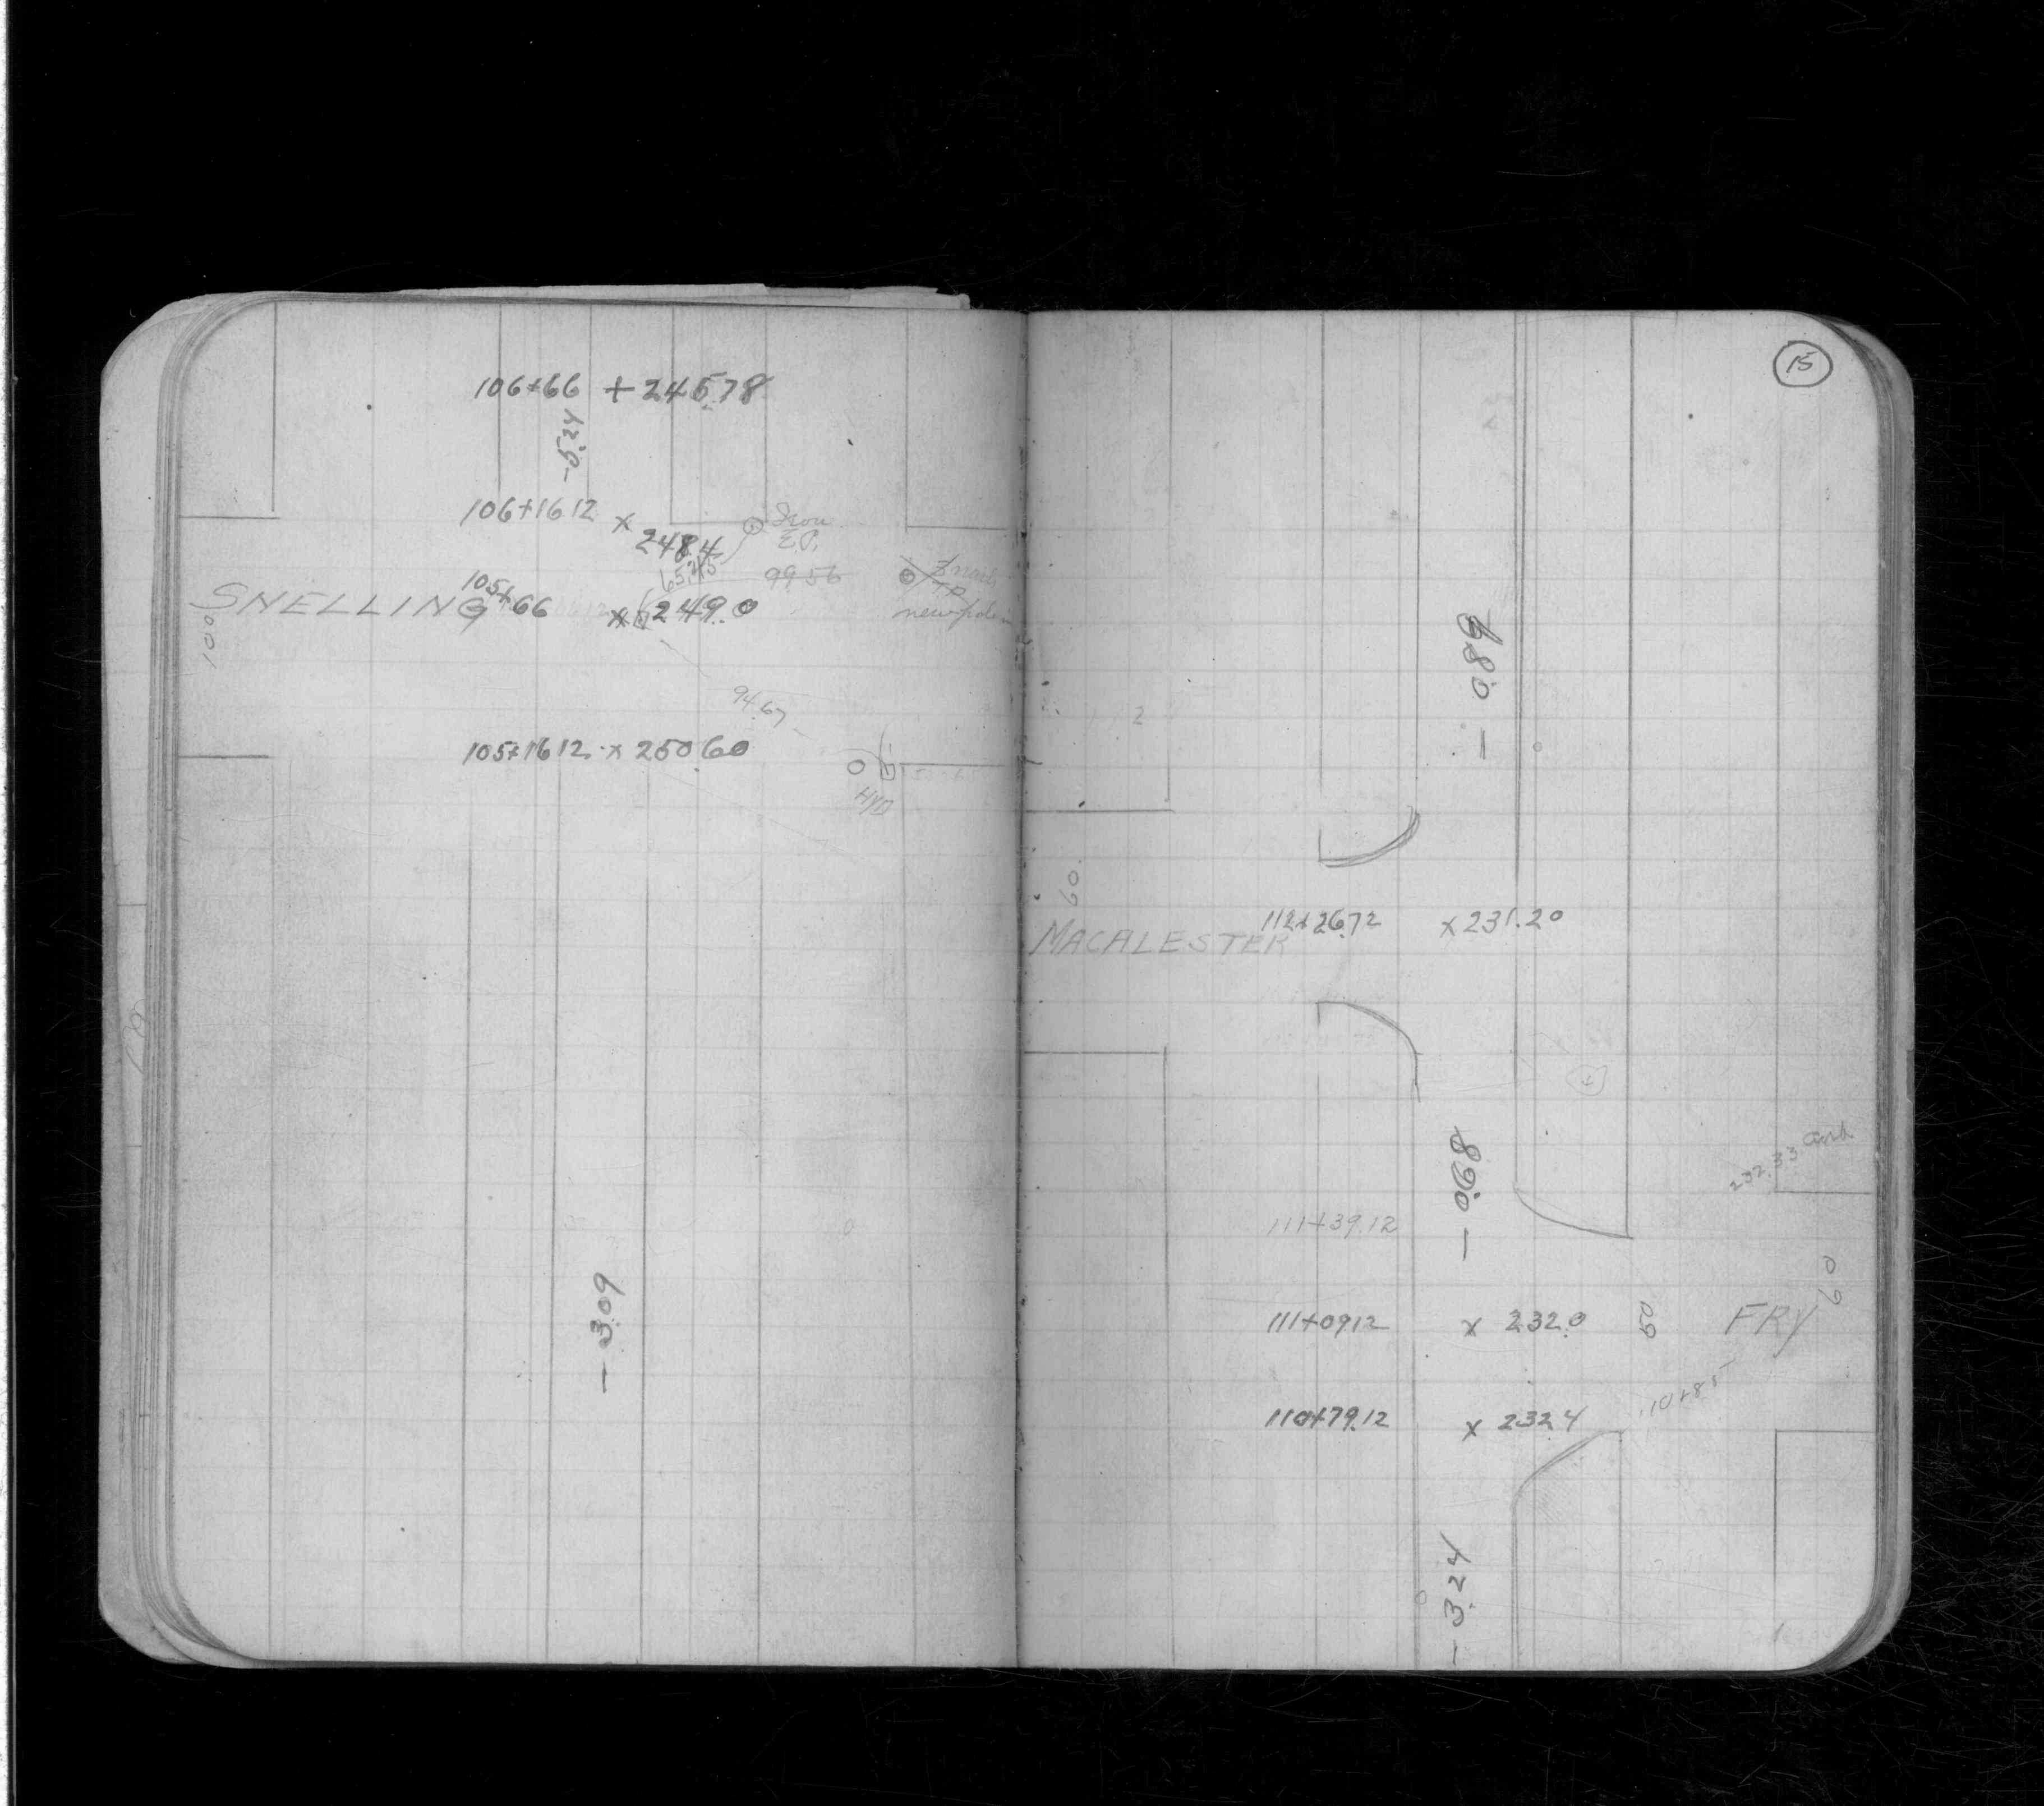 106+66 + 245.78
-5.24
106+16.12 x
248.4
Iron
E.P.
65.45
99.56
nails
T.P.
new pole
SNELLING
100
105+66 x 249.0
94.67
105+16.12 x 250.60
HYD
-3.09
15
-0.89
60
112+26.72 x 231.20
MACALESTER
-0.68
232.33
111+39.12
111+09.12 x 232.0
60
FRY
60
110+85
110+79.12 x 232.4
-3.24